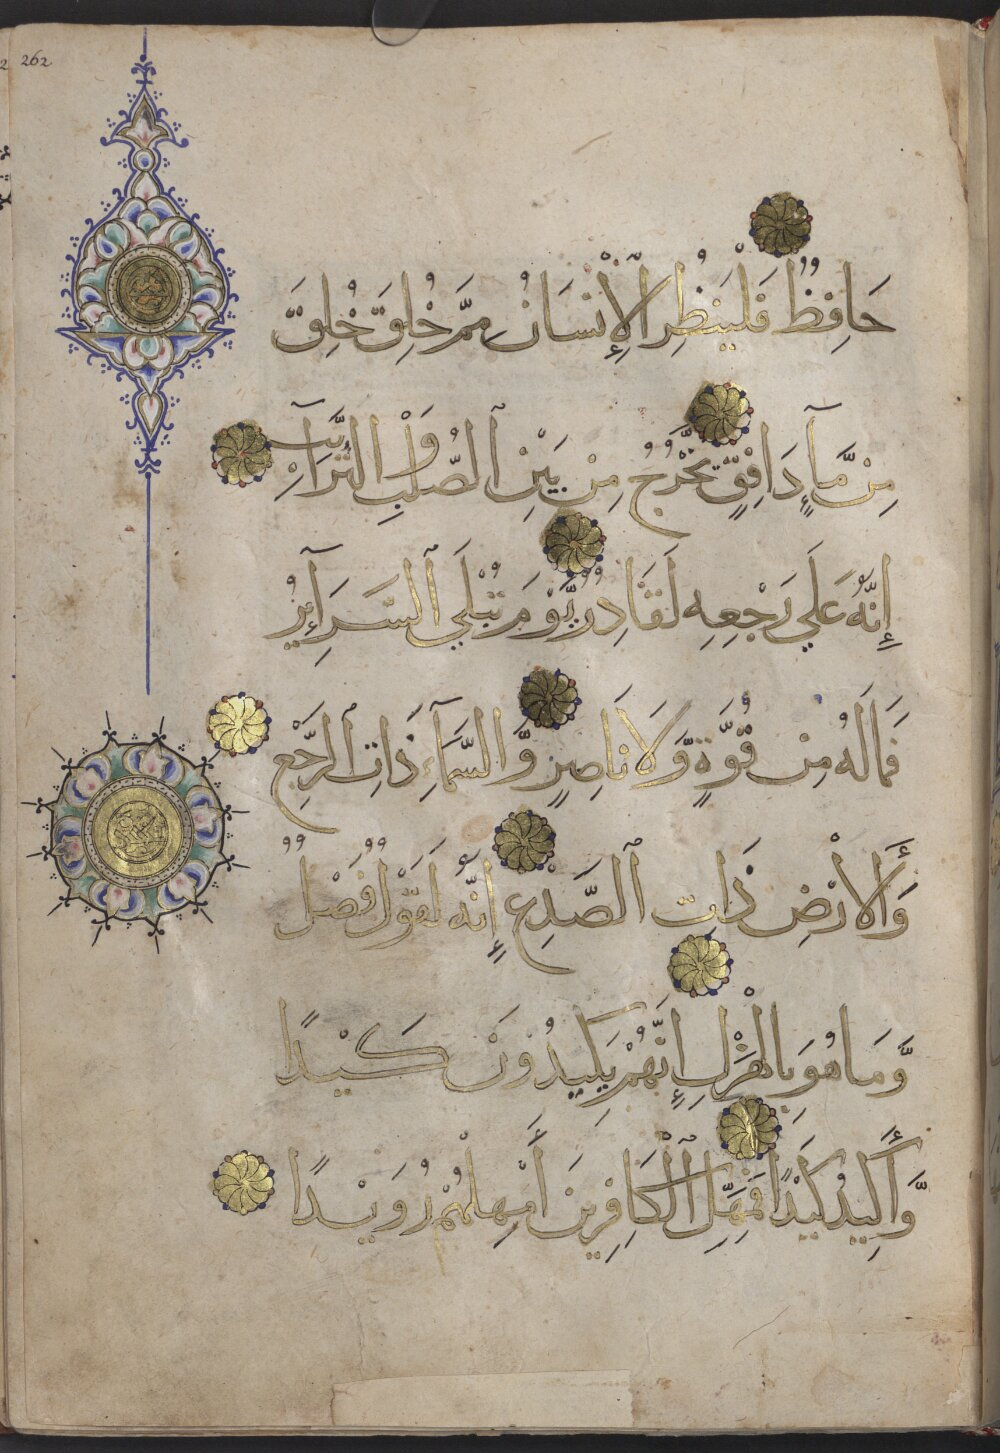 262
حَافِظٌ فَلْيَنظُرِ ٱلْإِنْسَانُ مِمَّ خُلِقَ خُلِقَ
مِن مَّآءٍ دَافِقٍ يَّخْرُجُ مِن بَيْنِ ٱلصُّلْبِ وَالتَّرَآئِبِ
إِنَّهُ عَلَي رَجْعِهِ لَقَادِرٌ يَّوْمَ تُبْلَي ٱلسَّرَآئِرُ
فَمَا لَهُ مِن قُوَّةٍ وَّلَا نَاصِرٍ وَّالسَّمَآءِ ذَاتِ ٱلرَّجْعِ
وَٱلْأَرْضِ ذَاتِ ٱلصَّدْعِ إِنَّهُ لَقَوْلٌ فَصْلٌ
وَّمَا هُوَ بِالْهَزْلِ إِنَّهُمْ يَكِيدُونَ كَيْدًا
وَّأَكِيدُ كَيْدًا فَمَهِّلِ ٱلْكَافِرِينَ أَمْهِلْهُمْ رُوَيْدًا